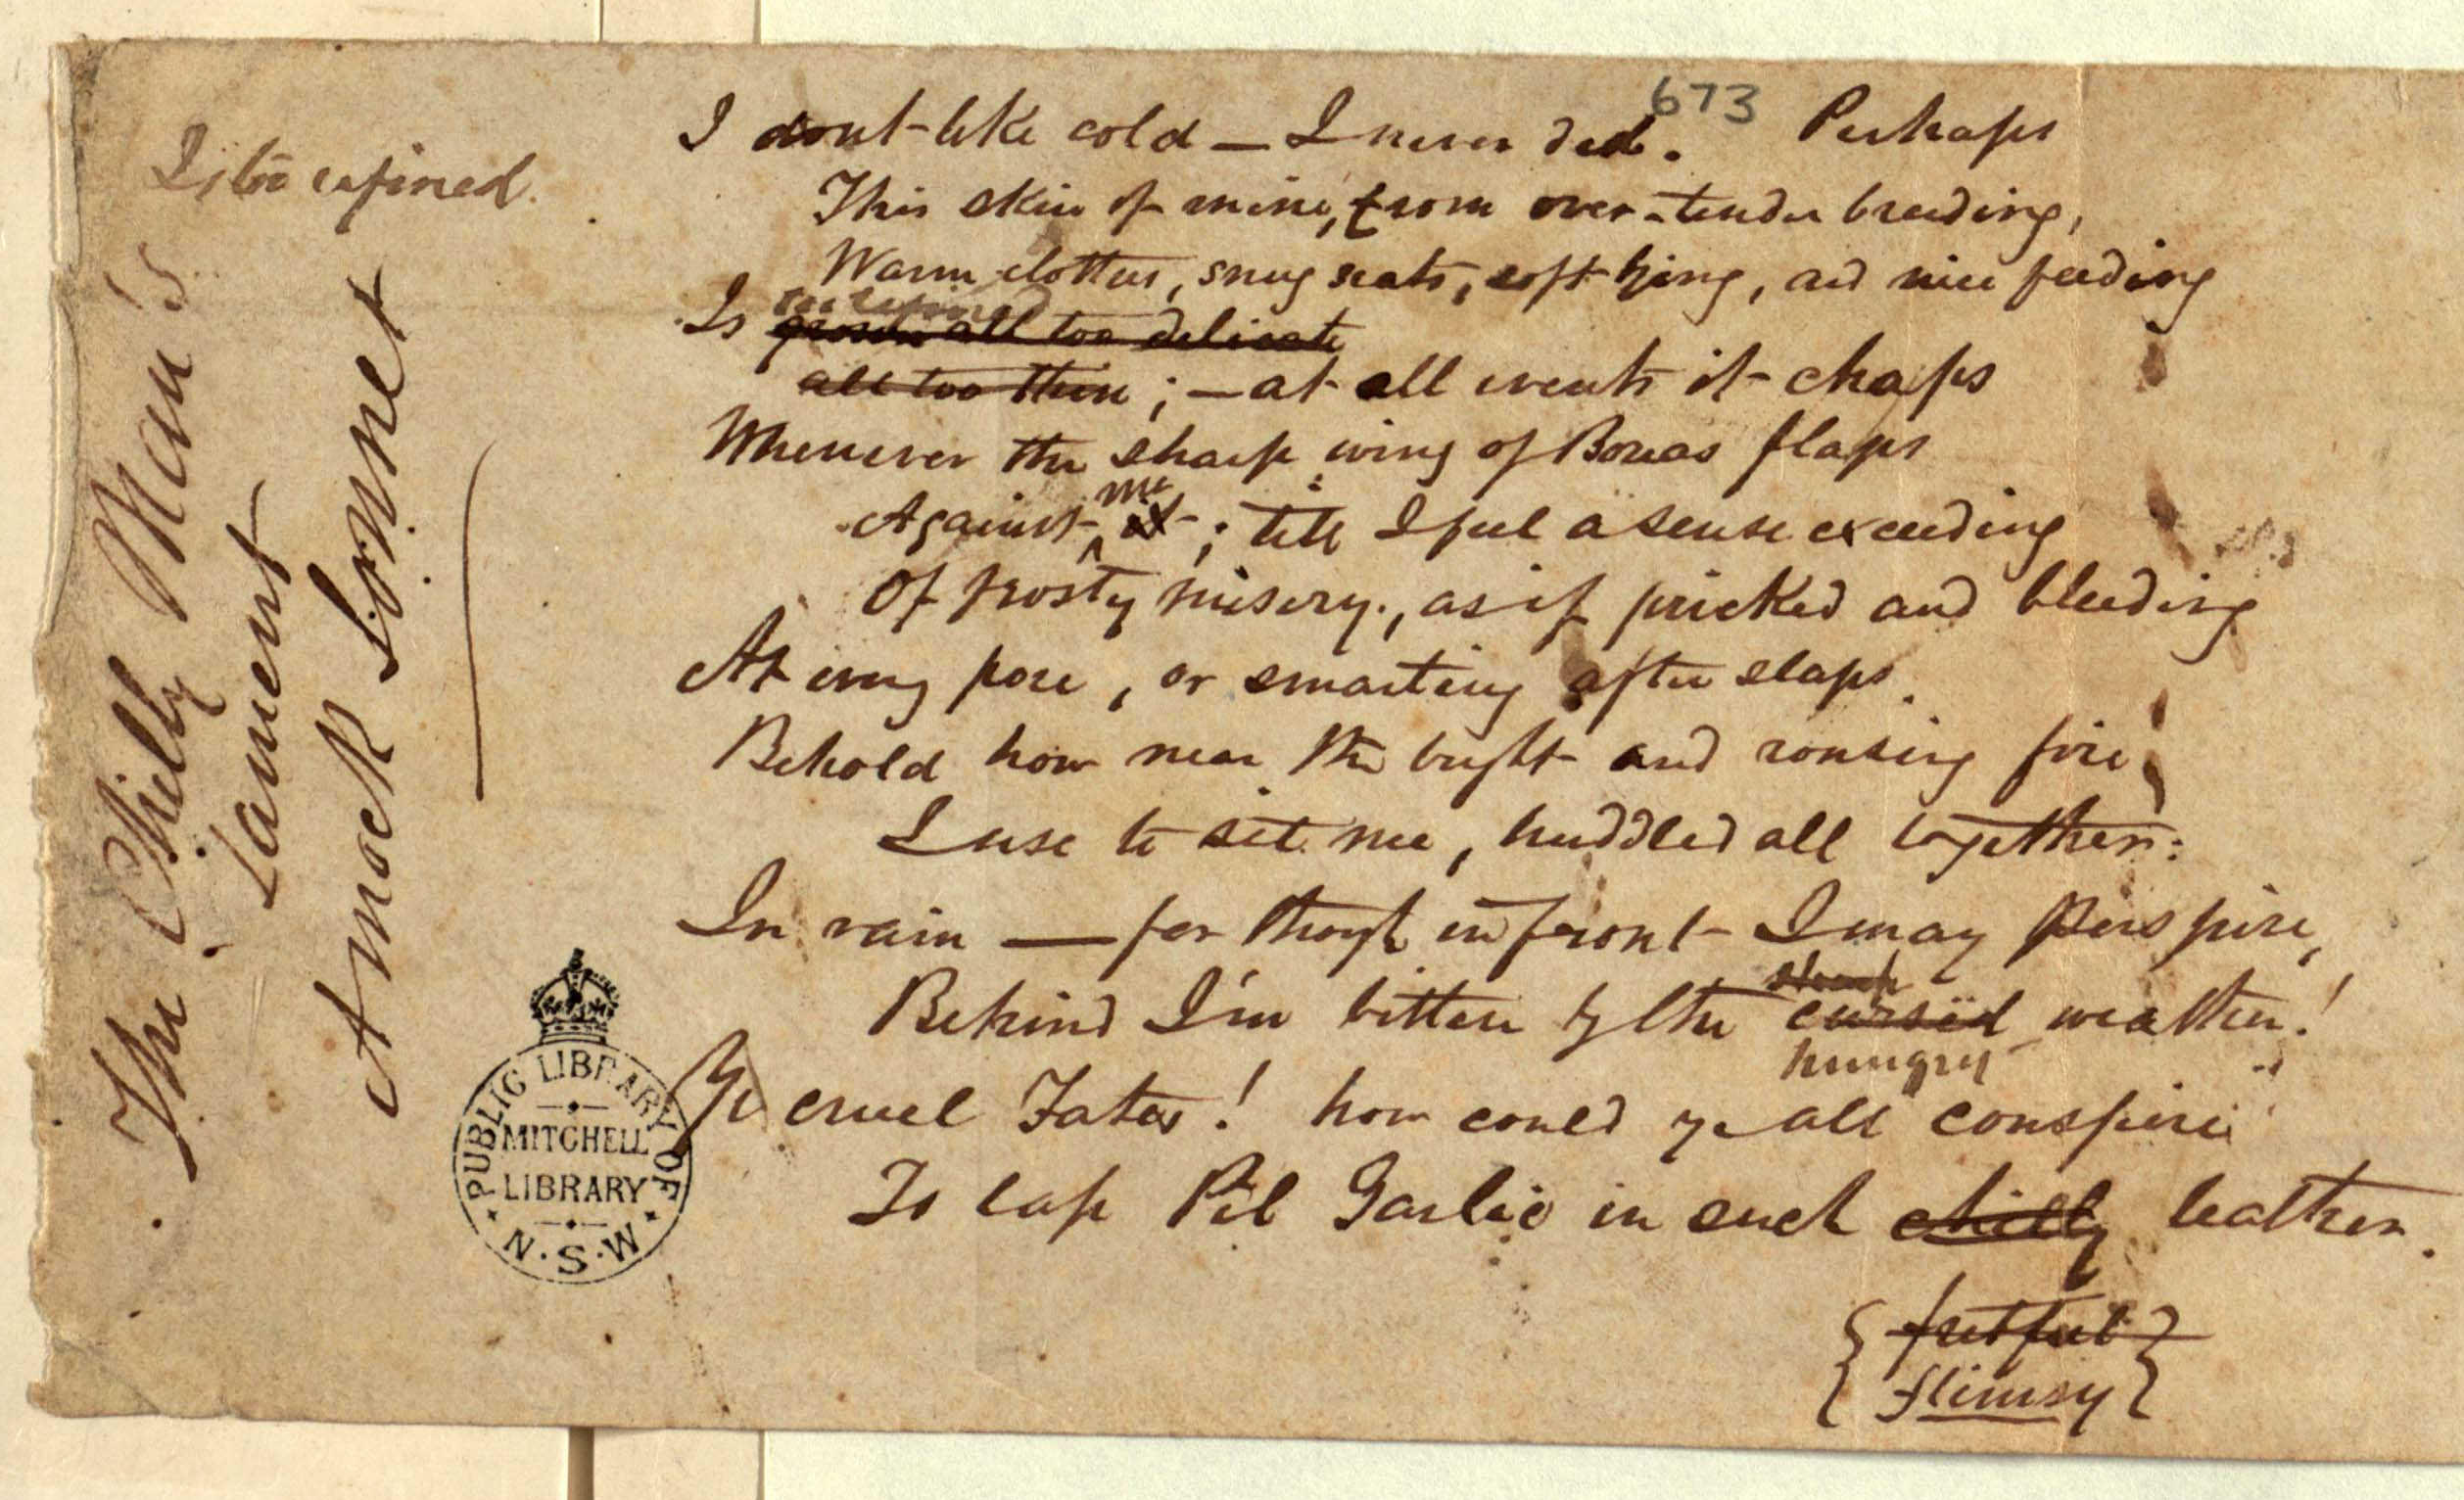 673
Is too refined.
The Chilly Man's
Lament
A mock Sonnet
I dont like cold — I never did. Perhaps
This skin of mine, from over-tender breeding,
Warm clothes, snug seats, soft lying, and nice feeding
too refined
Is grown all too delicate
all too thin ; — at all events it chaps
Whenever the sharp wing of Boreas flaps
me
Against it ; till I feel a sense exceeding
Of frosty misery, as if pricked and bleeding
At every pore, or smarting after slaps.
Behold how near the bright and rousing fire
I use to sit me, huddled all together:
In vain — for though in front I may perspire,
Behind I'm bitten by the cursëd weather!
hungry
Ye cruel Fates! how could ye all conspire
To lap Pil Garlic in such chilly leather.
{ fretful }
{ flimsy }
PUBLIC LIBRARY OF N.S.W.
MITCHELL
LIBRARY